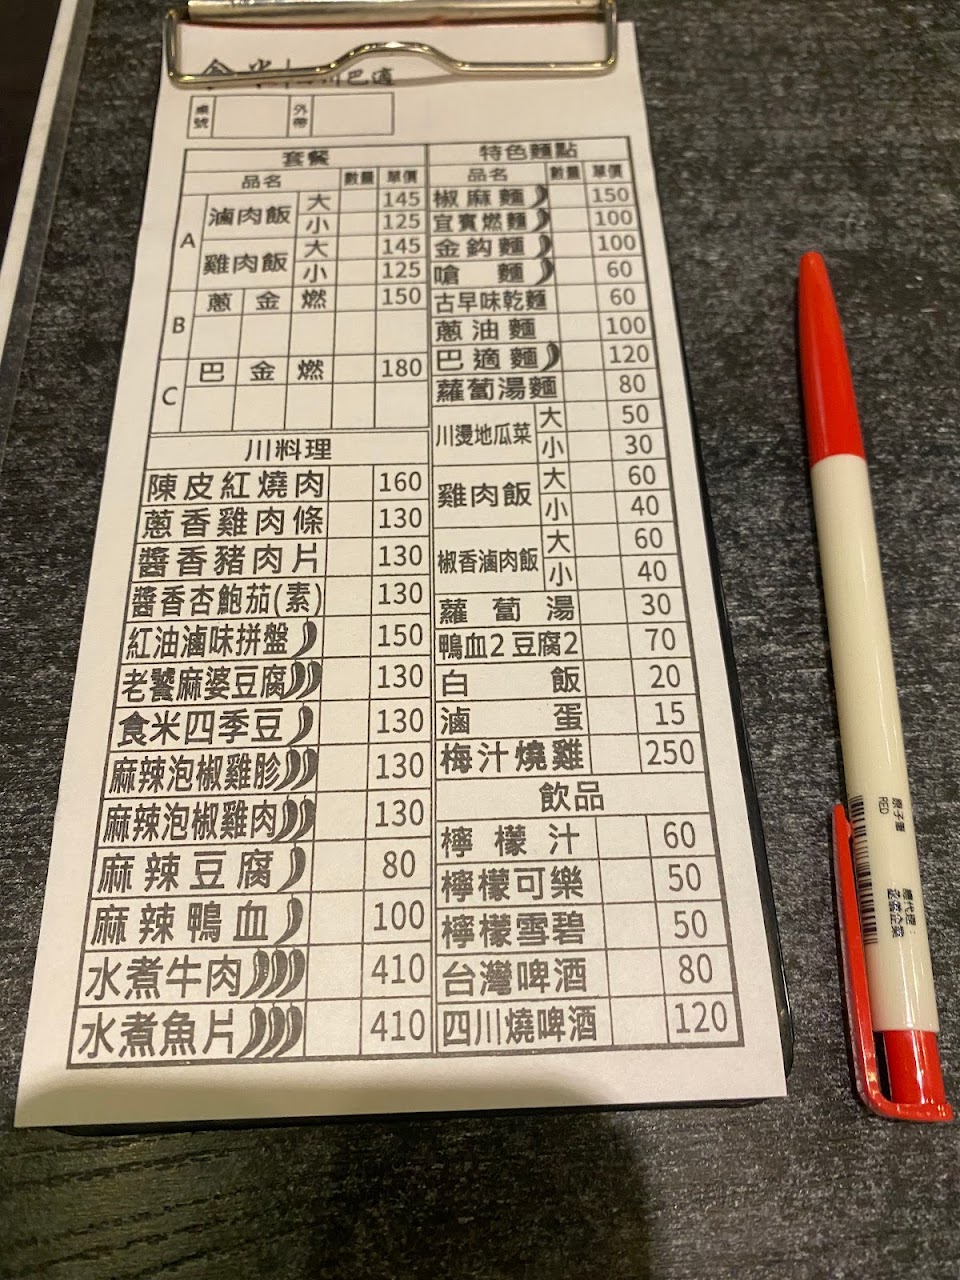 食米 川巴適
桌號 外帶
套餐
品名 數量 單價
A 滷肉飯 大 145
小 125
雞肉飯 大 145
小 125
B 蔥金燃 150
C 巴金燃 180
川料理
陳皮紅燒肉 160
蔥香雞肉條 130
醬香豬肉片 130
醬香杏鮑茄(素) 130
紅油滷味拼盤 150
老饕麻婆豆腐 130
食米四季豆 130
麻辣泡椒雞胗 130
麻辣泡椒雞肉 130
麻辣豆腐 80
麻辣鴨血 100
水煮牛肉 410
水煮魚片 410
特色麵點
品名 數量 單價
椒麻麵 150
宜賓燃麵 100
金鈎麵 100
嗆麵 60
古早味乾麵 60
蔥油麵 100
巴適麵 120
蘿蔔湯麵 80
川燙地瓜菜 大 50
小 30
雞肉飯 大 60
小 40
椒香滷肉飯 大 60
小 40
蘿蔔湯 30
鴨血2豆腐2 70
白飯 20
滷蛋 15
梅汁燒雞 250
飲品
檸檬汁 60
檸檬可樂 50
檸檬雪碧 50
台灣啤酒 80
四川燒啤酒 120
原子筆
RED
總代理：